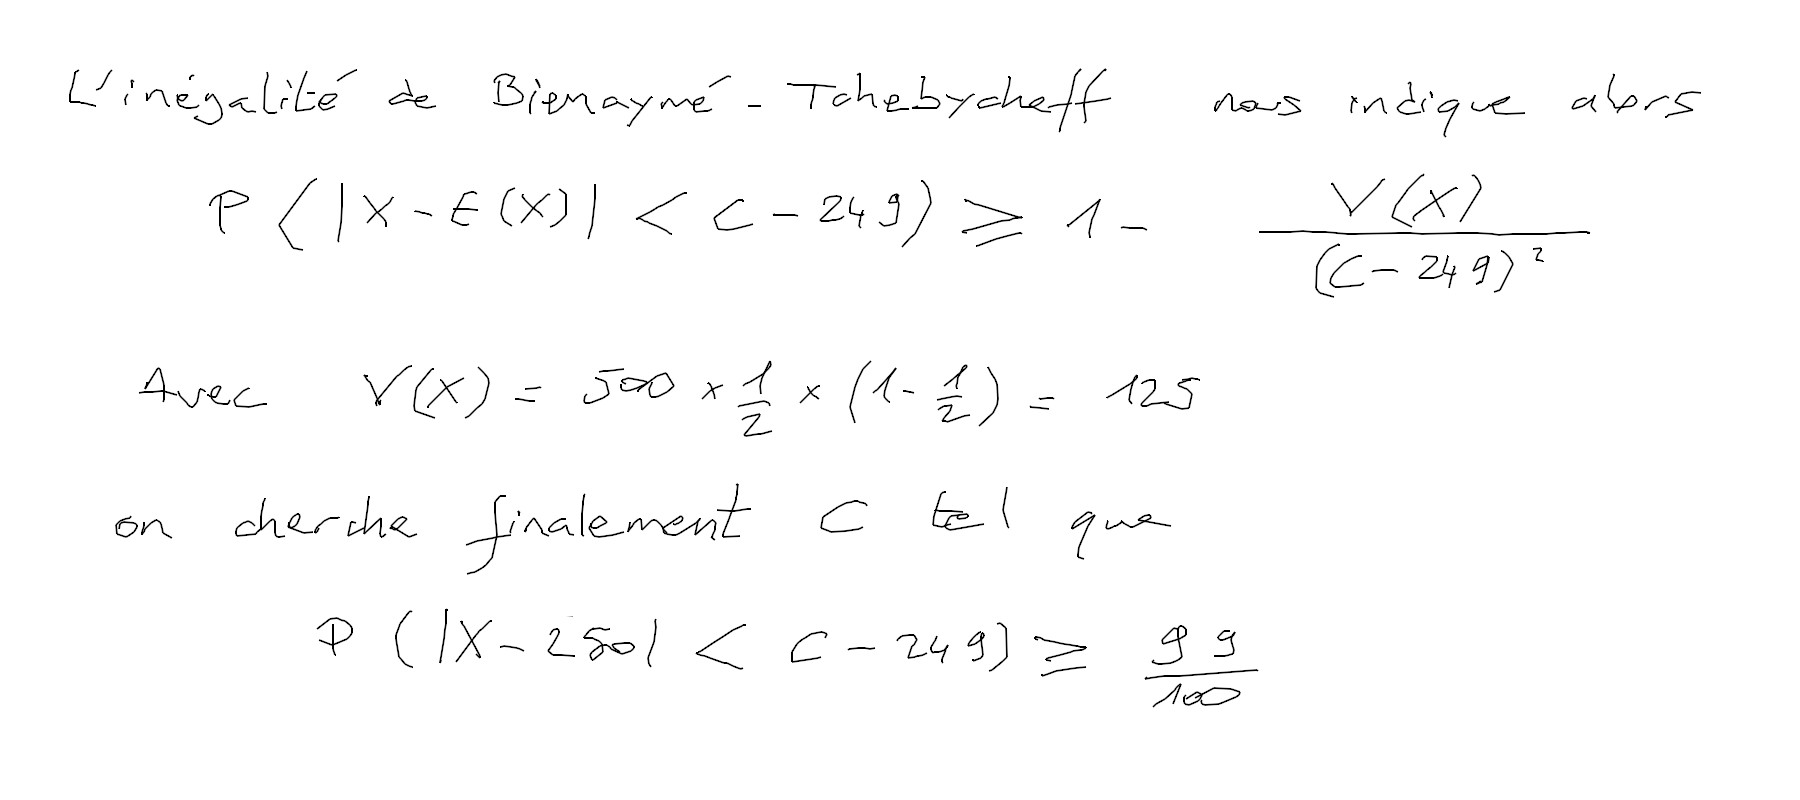 L'inégalité de Bienaymé - Tchebycheff nous indique alors
P(|X - E(X)| < C - 249) ⩾ 1 - V(X)/(C - 249)²
Avec V(X) = 500 × 1/2 × (1 - 1/2) = 125
on cherche finalement C tel que
P(|X - 250| < C - 249) ⩾ 99/100